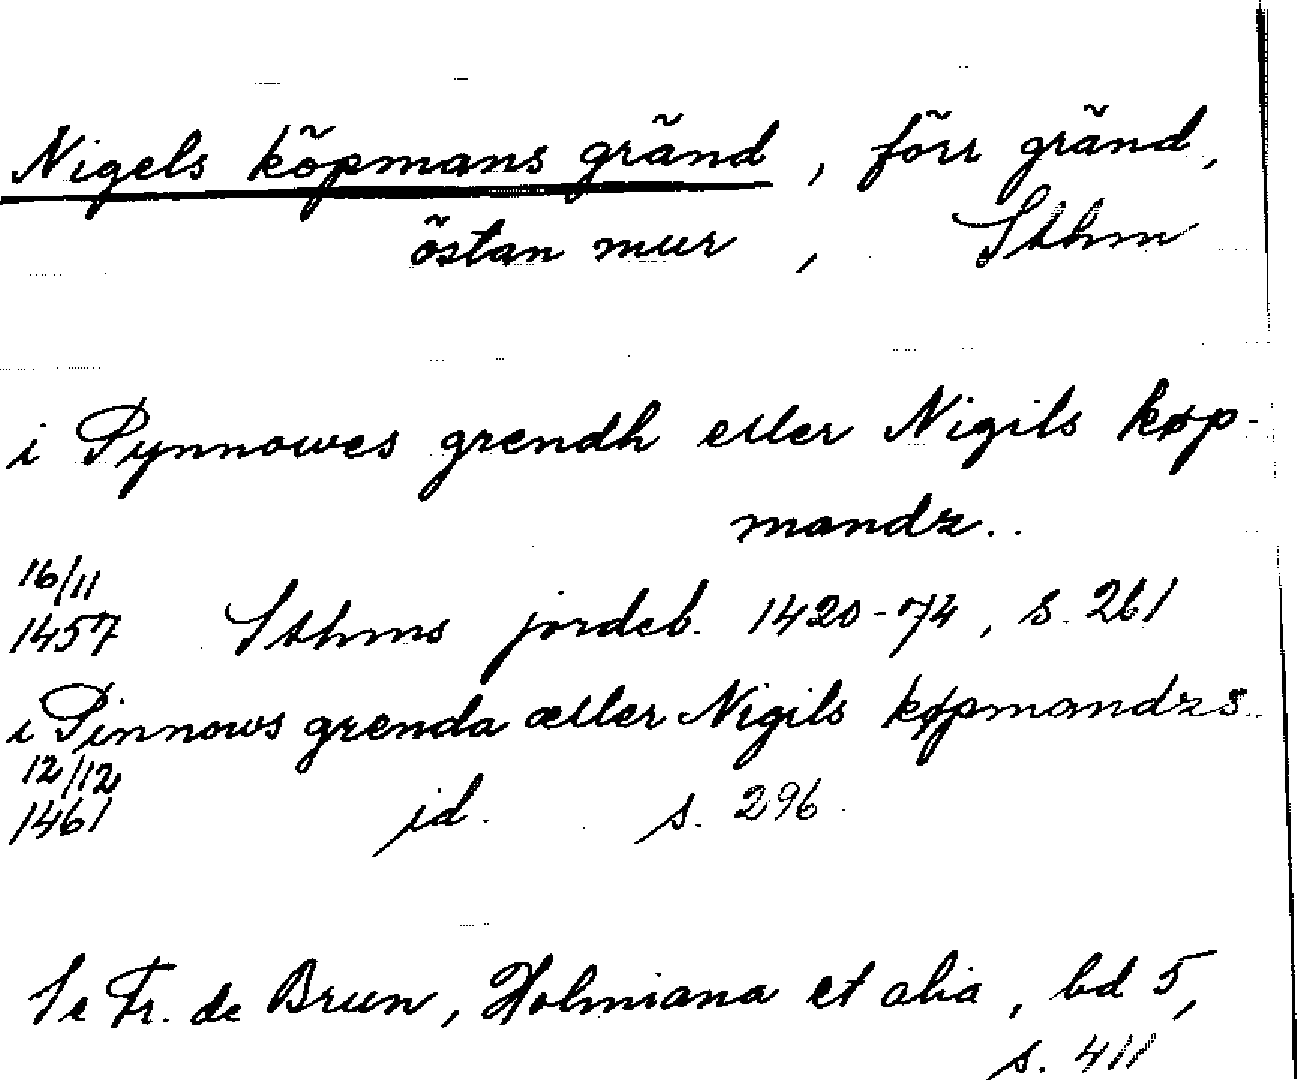 Nigels köpmans gränd, förr gränd,
östan mur, Sthm
i Pynnowes grendh eller Nigils køp-
mandz..
16/11
1457 Sthms jordeb. 1420-74, s. 261
i Pinnows grenda æller Nigils køpmandzs..
12/12
1461 id. s. 296
Se Fr. de Brun, Holmiana et alia, bd 5,
s. 411